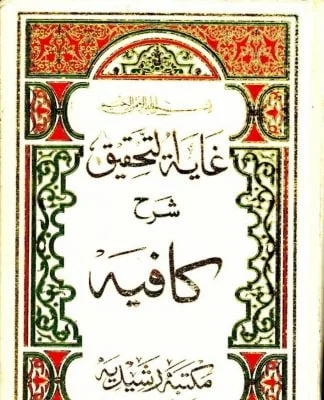 بسم الله الرحمن الرحيم
غاية التحقيق
شرح
كافيه
مكتبه رشيديه